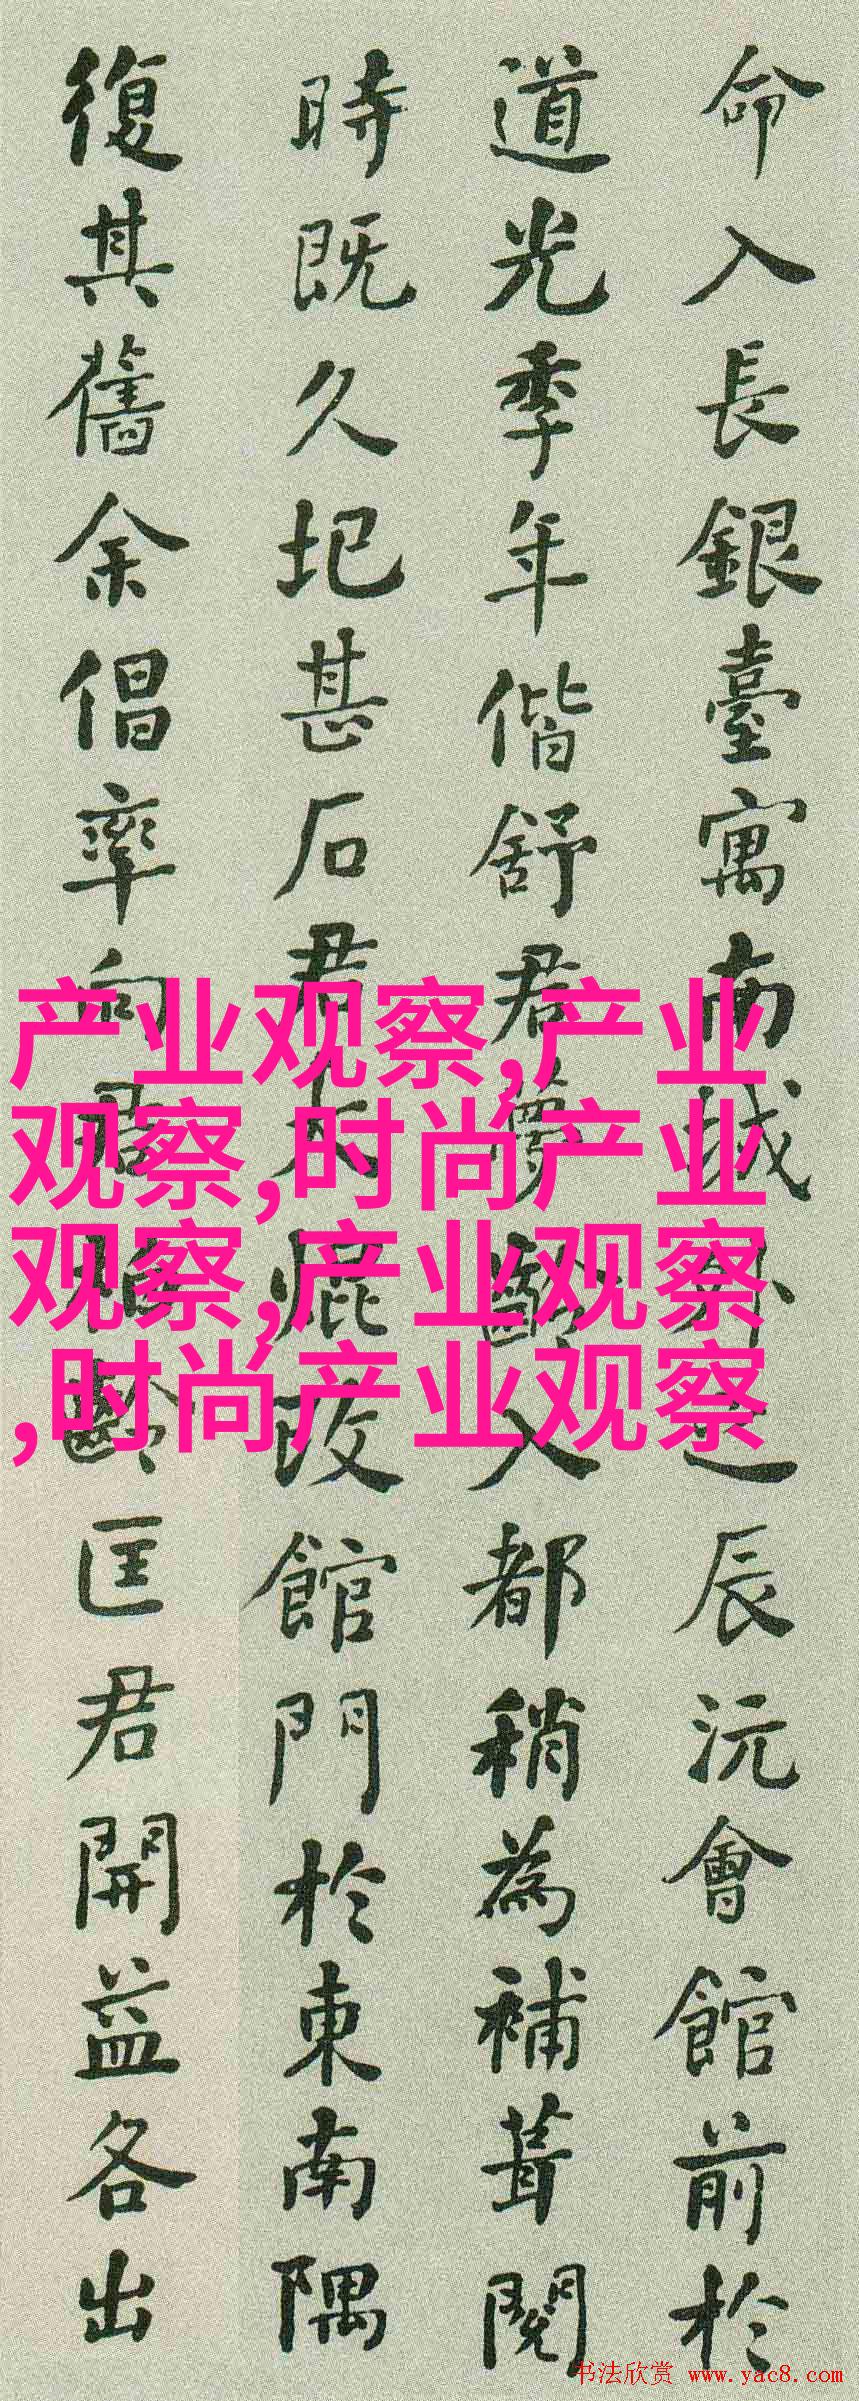 命入長銀臺寓南城外之辰沅會館前於
道光季年偕舒君夢齡入都稍為補葺閱
時既久圮甚石君大焜改館門於東南隅
復其舊余倡率向君齡匡君開益各出
产业观察,产业
观察,时尚产业
观察,产业观察
,时尚产业观察
书法欣赏 www.yac8.com